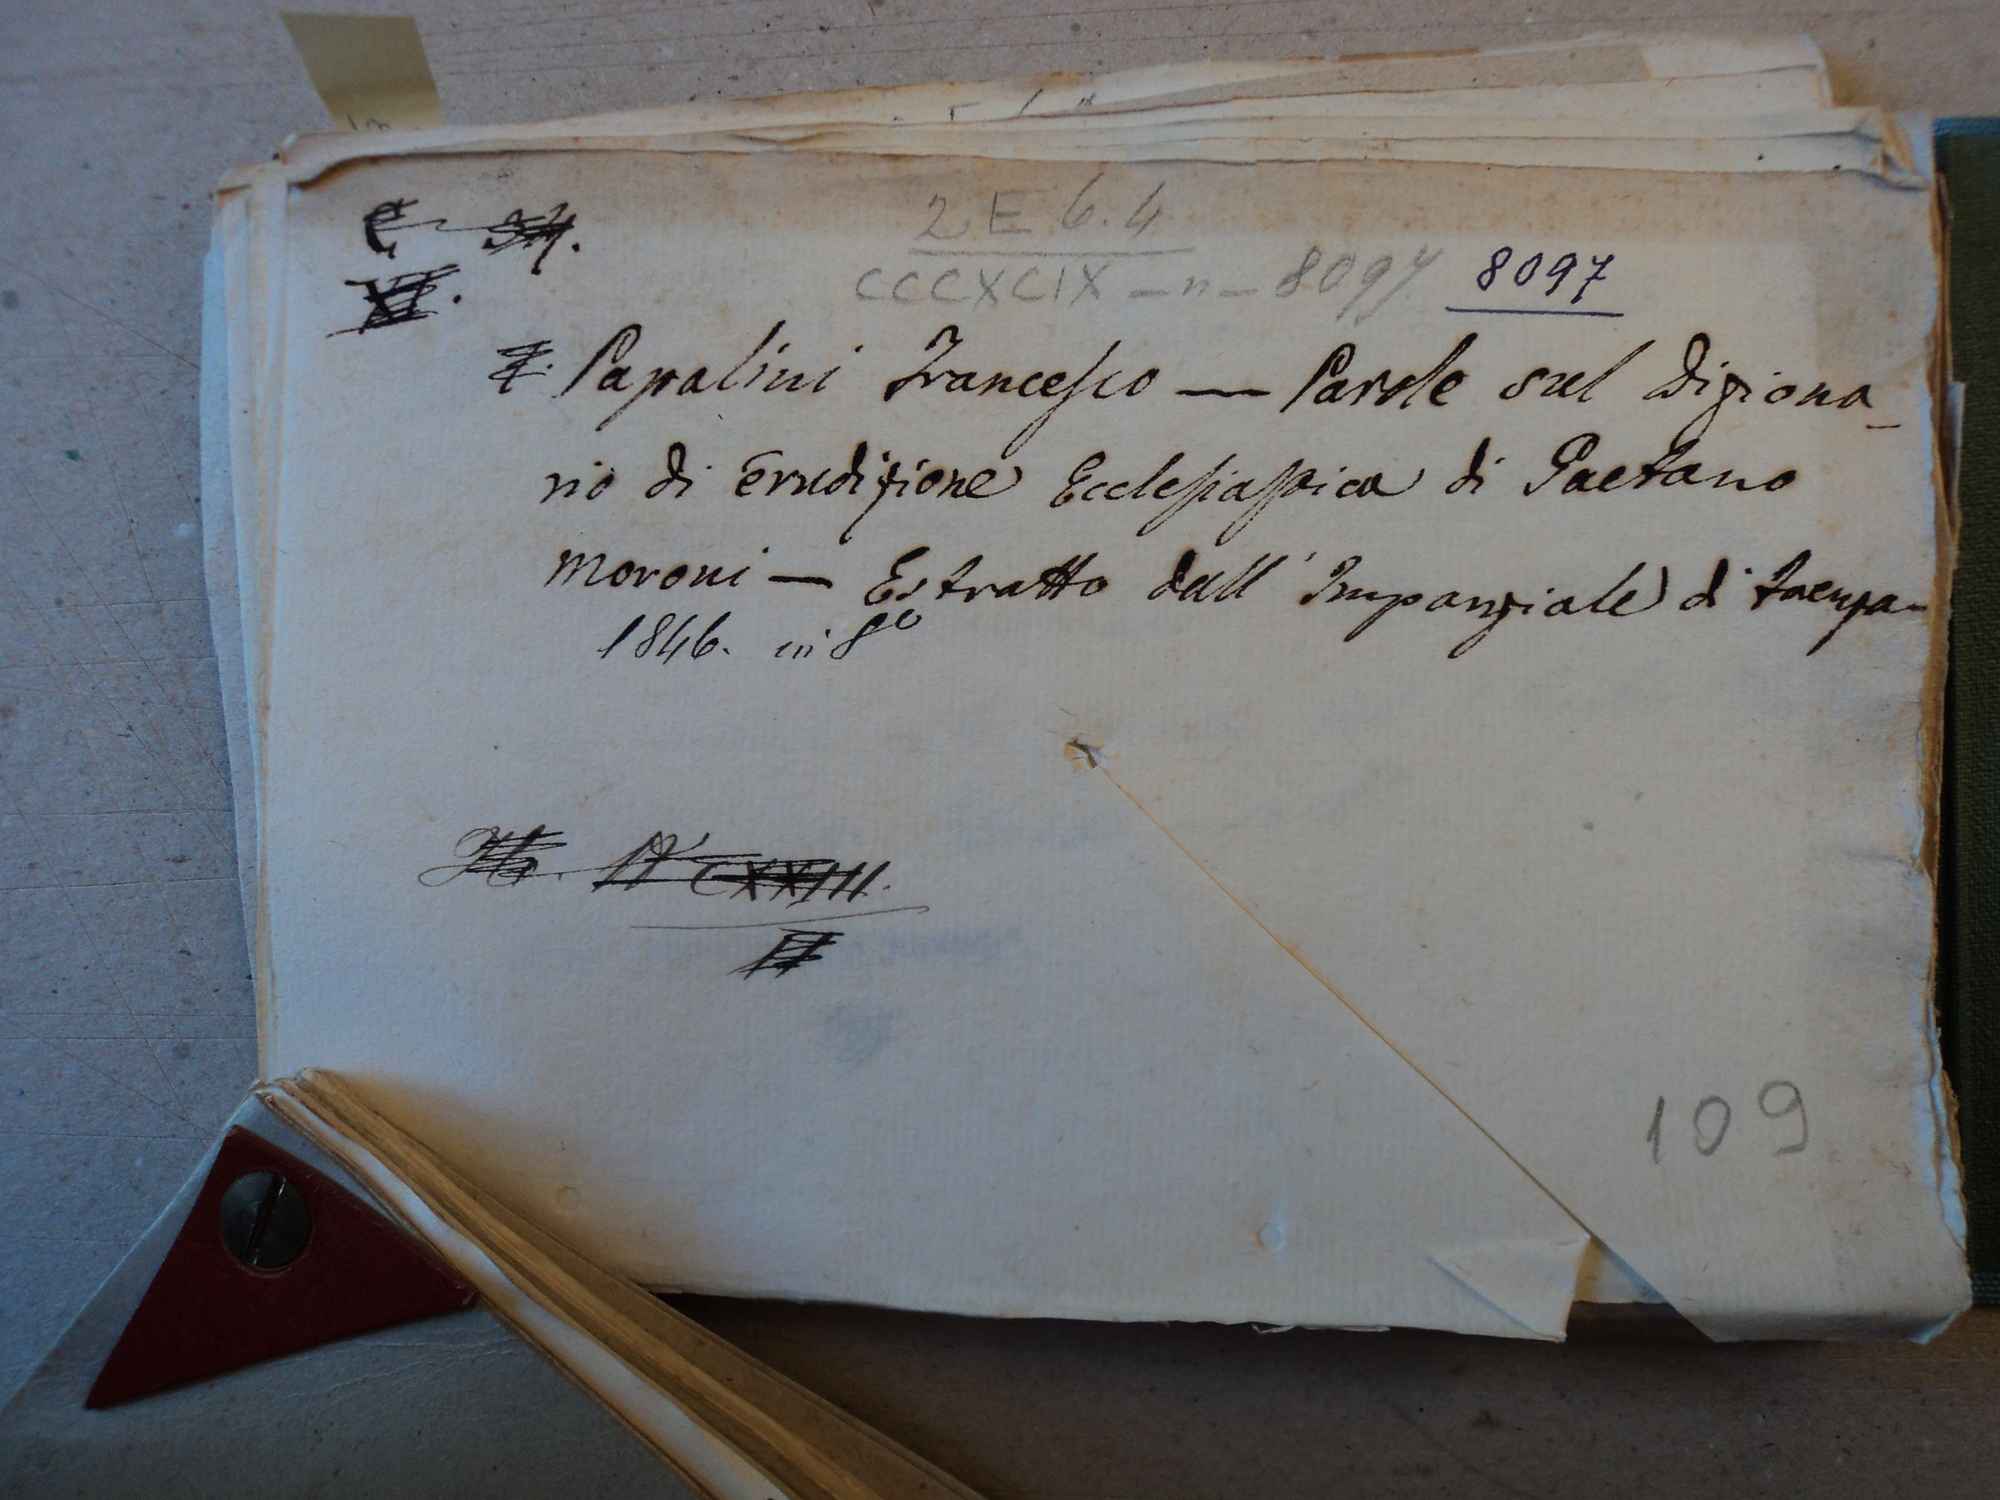 2 E 6.4
CCCXCIX - n - 8097 8097
Papalini Francesco — Parole sul Diziona-
rio di Erudizione Ecclesiastica di Gaetano
Moroni — Estratto dall' Imparziale di Faenza -
1846. in 8º
CXXIII.
109